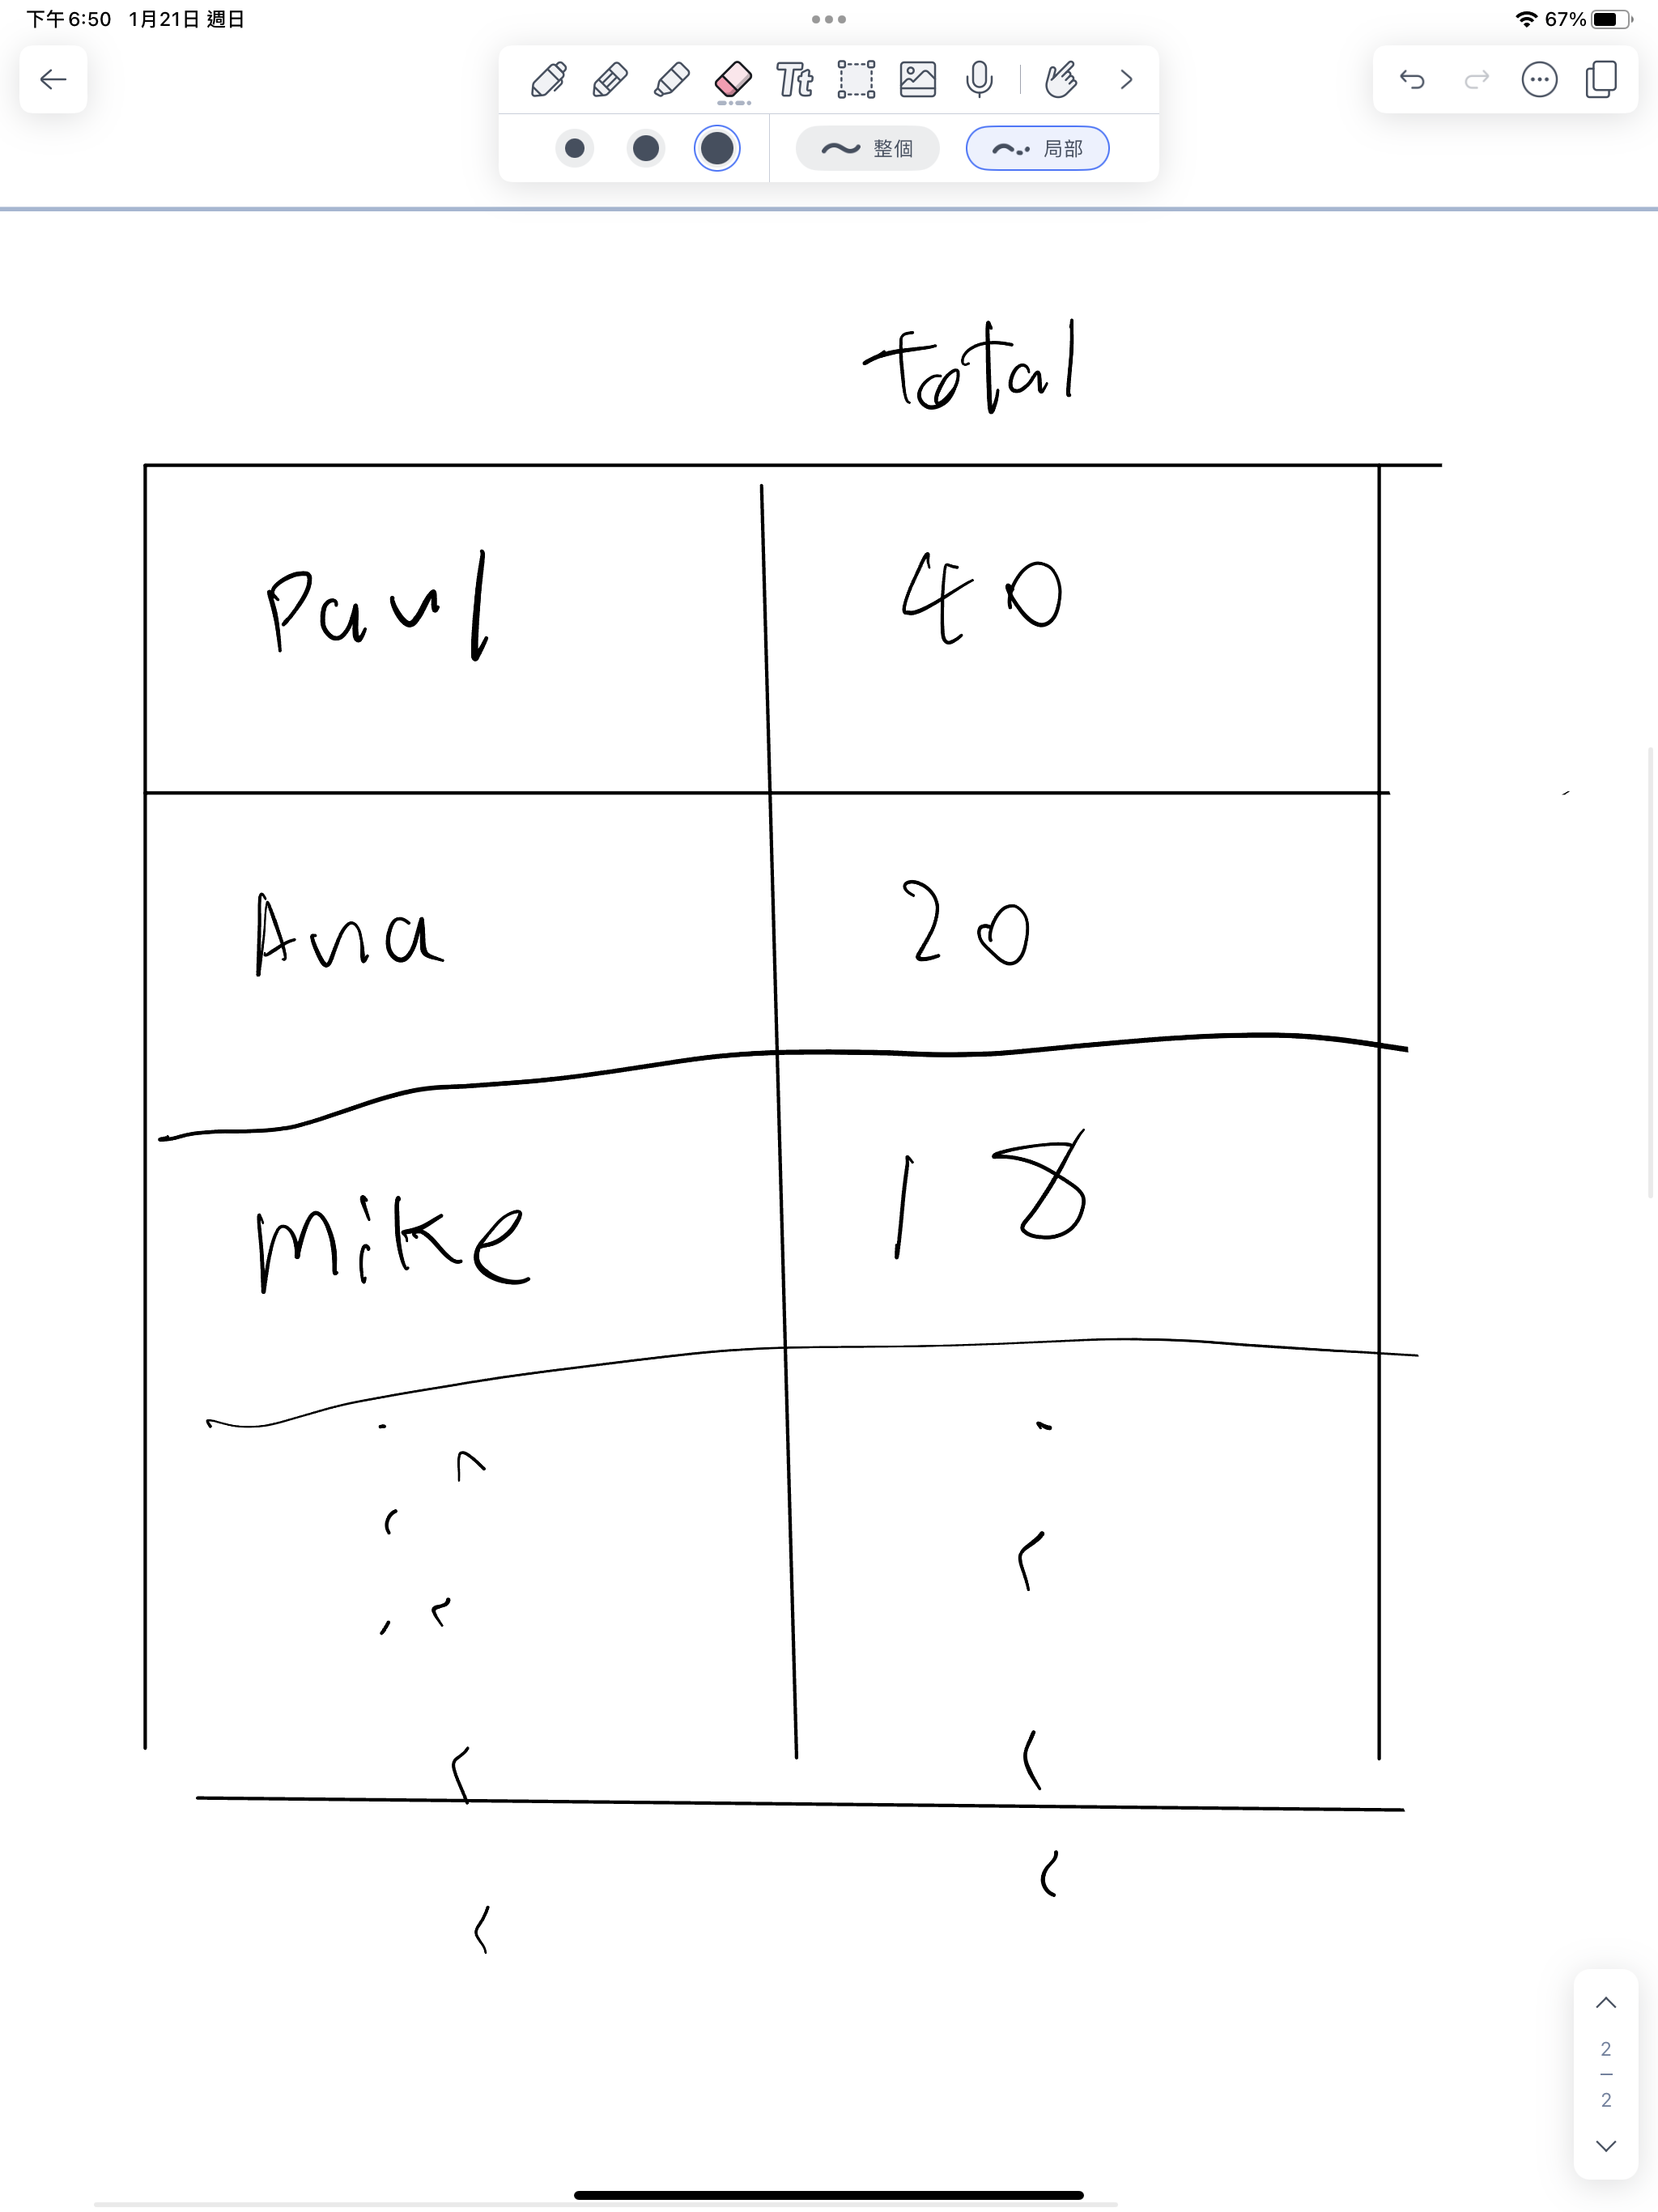 下午6:50 1月21日 週日
67%
Tt
整個 局部
total
Paul 40
Ana 20
Mike 18
2
2